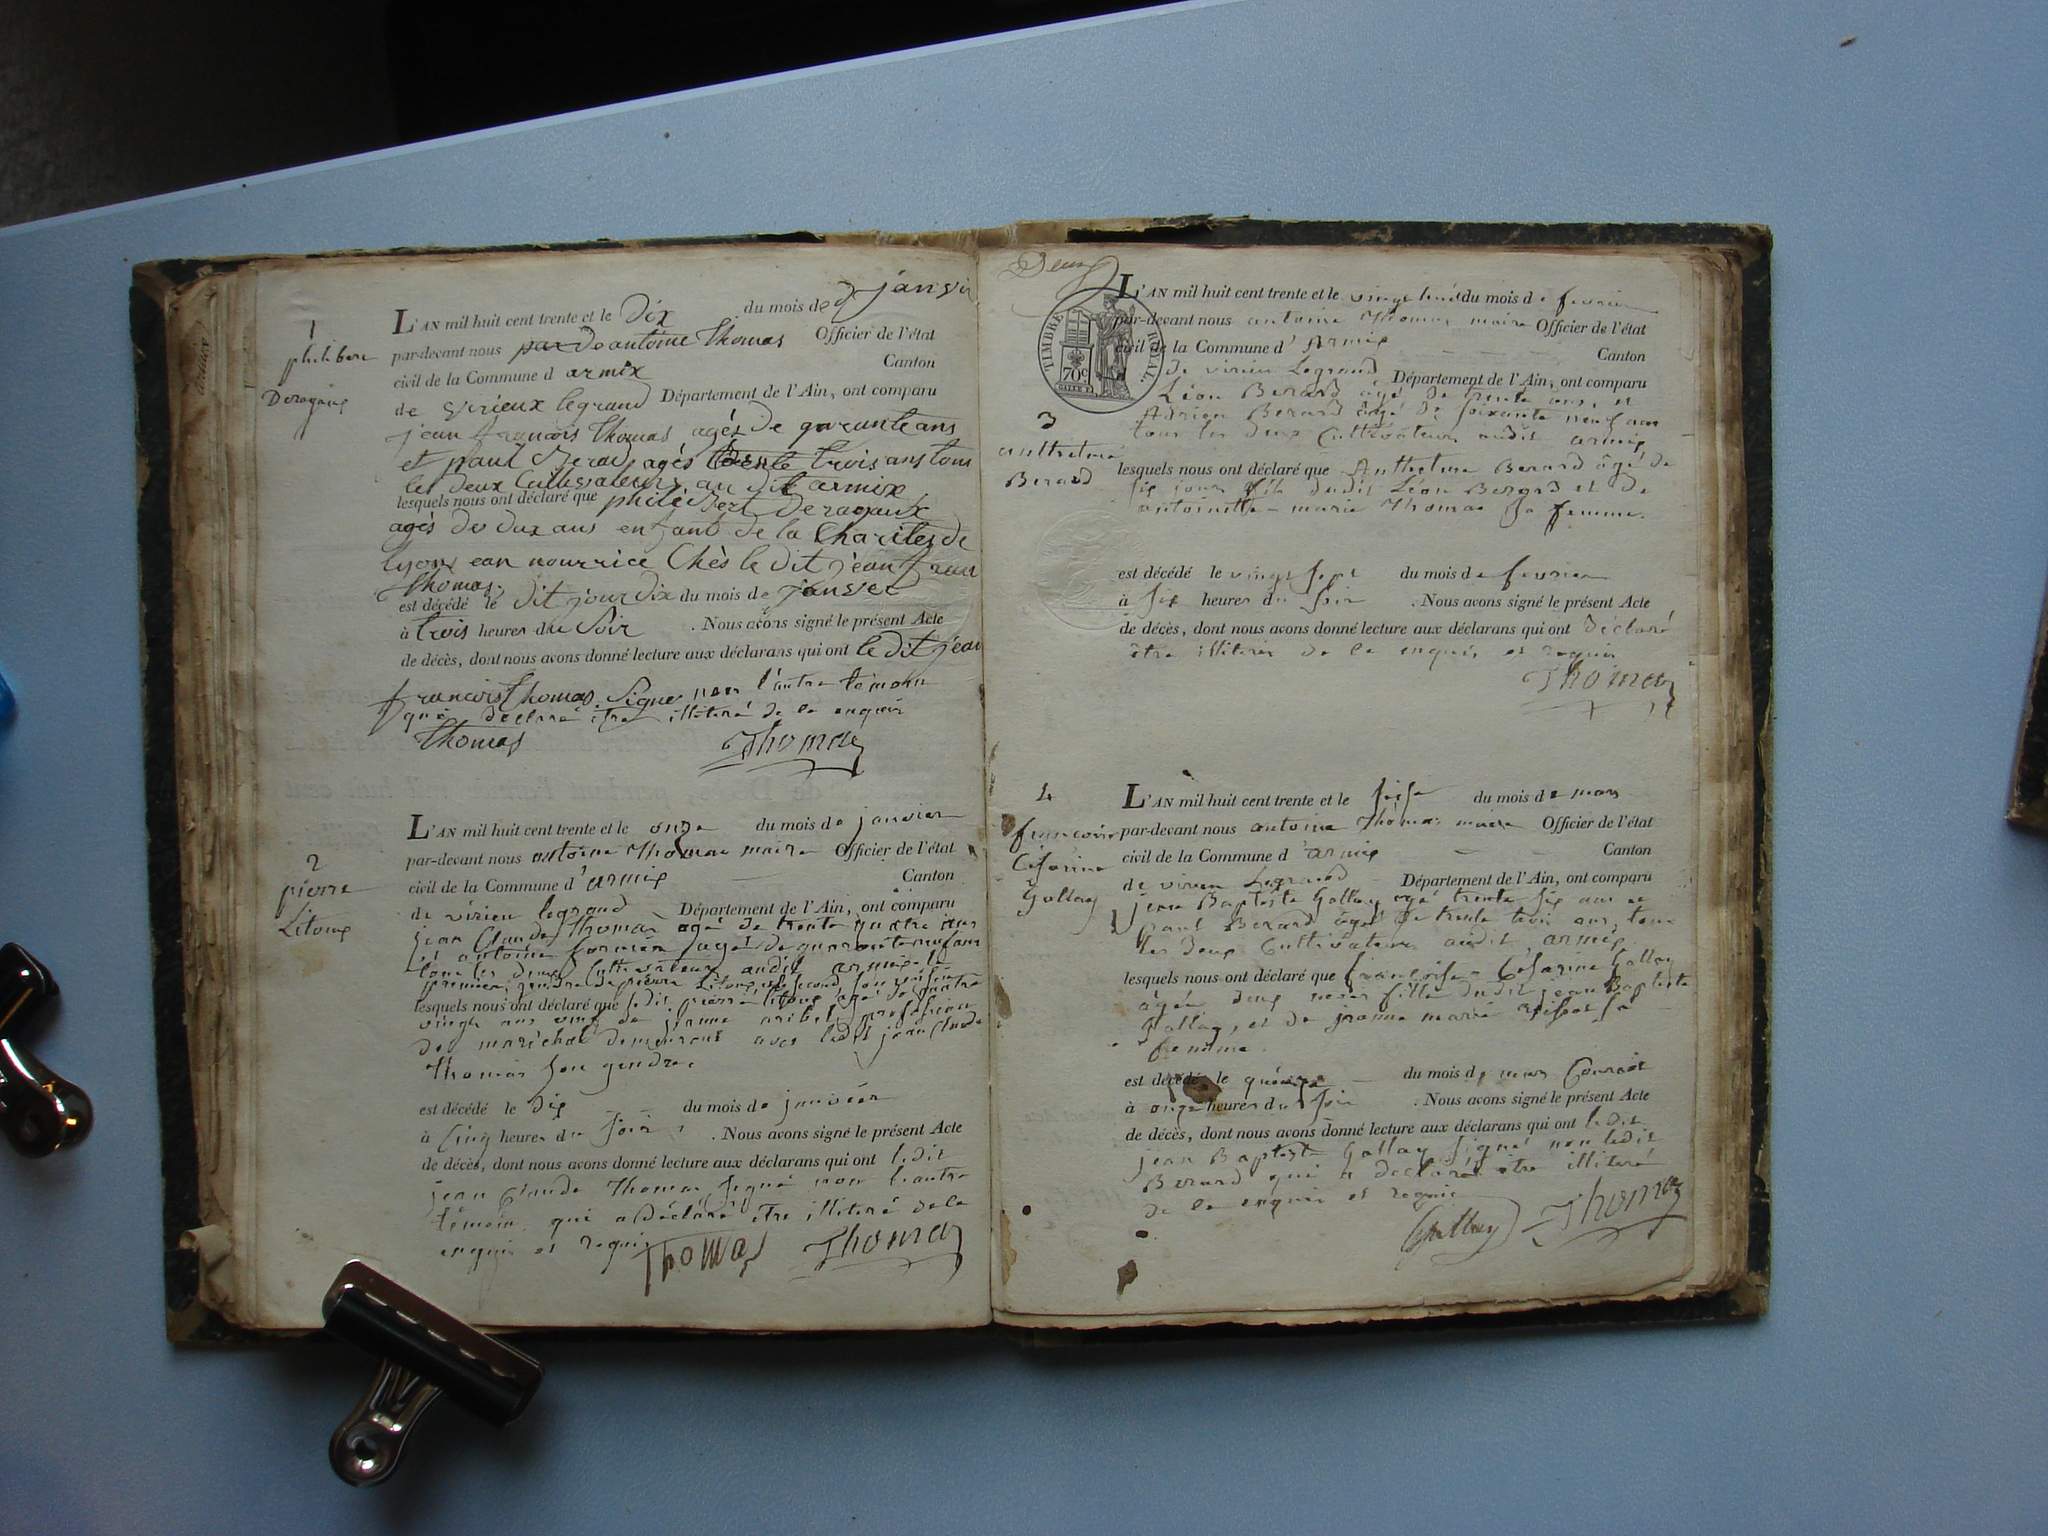 1
philibere
Deragaux
L'AN mil huit cent trente et le Dix du mois de janvie
par-devant nous par De antoine Thomas Officier de l'état
civil de la Commune d armix Canton
de virieux legrand Département de l'Ain, ont comparu
jean francois thomas agés De garante ans
et paul Berad agés trente trois ans tous
les deux Cultivateurs au dit armix
lesquels nous ont déclaré que philibert Deragaux
agés de dux ans enfant de la Charités de
lyon, ean nourrice Chès le dit jean fran
thomas
est décédé le dit jour dix du mois de janvier
à trois heures du Soir . Nous avons signé le présent Acte
de décès, dont nous avons donné lecture aux déclarans qui ont le dit jean
francois thomas Signe non l'autre témoin
qui declaré etre illiteré de le enquis
Thomas Thomas
2
pierre
Litoux
L'AN mil huit cent trente et le onze du mois de janvier
par-devant nous antoine Thomas maire Officier de l'état
civil de la Commune d' armix Canton
de virieu legrand Département de l'Ain, ont comparu
jean Claude Thomas agé de trente quatre ans
et antoine agé de quarante neuf ans
tous les deux Cultivateur audit armix le
premier gendre de pierre Litoux, le second son voisin
lesquels nous ont déclaré que ledit pierre litoux agé de quatre
vingt ans veuf de jeanne profession
de maréchal demeurant avec ledit jean Claude
Thomas son gendre
est décédé le dix du mois de janvier
à Cinq heures du Soir . Nous avons signé le présent Acte
de décès, dont nous avons donné lecture aux déclarans qui ont ledit
jean Claude Thomas signé non l'autre
témoin qui a déclaré etre illiteré de le
enquis et requis
Thomas Thomas
Deux
TIMBRE ROYAL
70c
L'AN mil huit cent trente et le vingt huit du mois de fevrier
par-devant nous antoine Thomas maire Officier de l'état
civil de la Commune d' Armix Canton
de virieu Legrand Département de l'Ain, ont comparu
Léon Berard agé de trente ans, et
Adrien Berard âgé de soixante neuf ans
tous les deux Cultivateurs audit armix
3
anthelme
Berard
lesquels nous ont déclaré que Anthelme Berard âgé de
six jours fils dudit Léon Berard et de
antoinette-marie Thomas sa femme.
est décédé le vingt sept du mois de fevrier
à six heures du soir . Nous avons signé le présent Acte
de décès, dont nous avons donné lecture aux déclarans qui ont déclaré
être illiterés de le enquis et requis
Thomas
4
francoise
Cesarine
Gallay
L'AN mil huit cent trente et le seize du mois de mars
par-devant nous antoine Thomas maire Officier de l'état
civil de la Commune d' armix Canton
de virieu Legrand Département de l'Ain, ont comparu
jean Baptiste Gallay agé trente six ans et
paul Berard âgé de trente trois ans, tous
les deux Cultivateurs audit armix
lesquels nous ont déclaré que françoise-Césarine Gallay
âgée deux mois fille dudit jean Baptiste
Gallay, et de jeanne marie sa
femme.
est décédé le quinze du mois de mars Courant
à onze heures du soir . Nous avons signé le présent Acte
de décès, dont nous avons donné lecture aux déclarans qui ont ledit
jean Baptiste Gallay signé non ledit
Berard qui a declaré etre illiteré
de le enquis et requis
Gallay Thomas